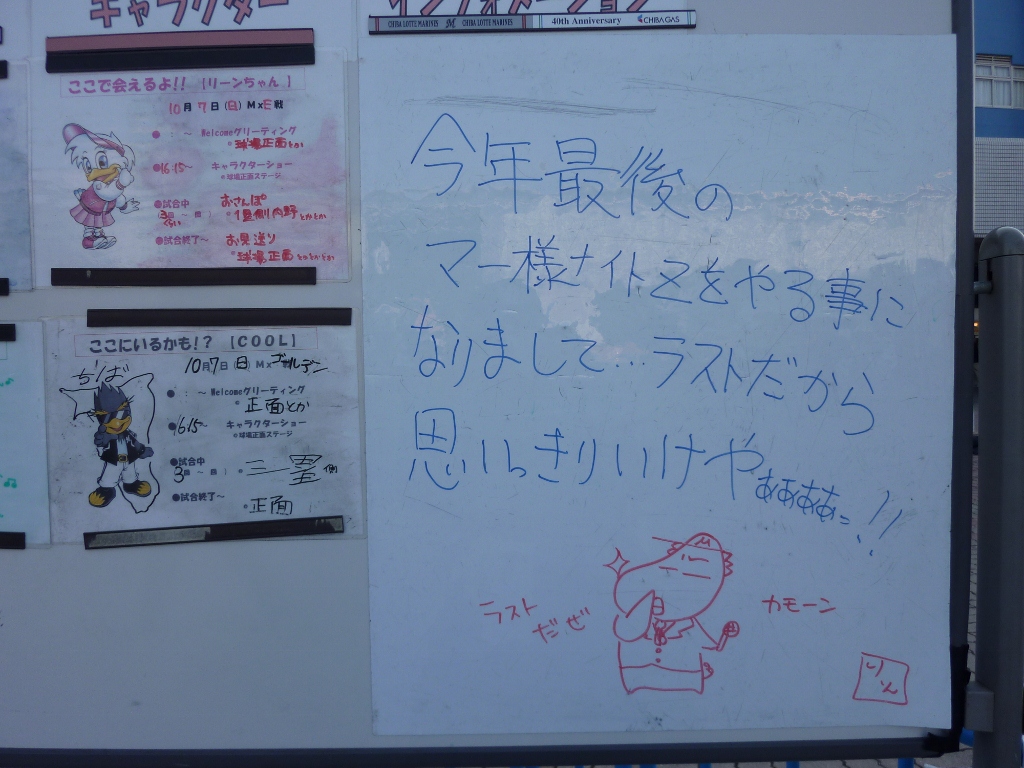 キャラクター
インフォメーション
CHIBA LOTTE MARINES M CHIBA LOTTE MARINES 40th Anniversary CHIBAGAS
ここで会えるよ!! 【リーンちゃん】
10月7日(日) M×E戦
● : ～ Welcomeグリーティング
• 球場正面とか
●16:15～ キャラクターショー
※球場正面ステージ
●試合中 おさんぽ
3回～ 回 : • 1塁側内野とかとか
ぐらい
●試合終了～ お見送り
• 球場正面とかとかとか
ここにいるかも!? 【COOL】
10月7日(日) M×ゴールデン
ちば
● : ～ Welcomeグリーティング
• 正面とか
●16:15～ キャラクターショー
※球場正面ステージ
●試合中
3回～ 回 : • 三塁側
●試合終了～
• 正面
今年最後の
マー様ナイトZをやる事に
なりまして…ラストだから
思いっきりいけやぁぁぁぁっ!!
ラスト
だぜ
カモーン
りん